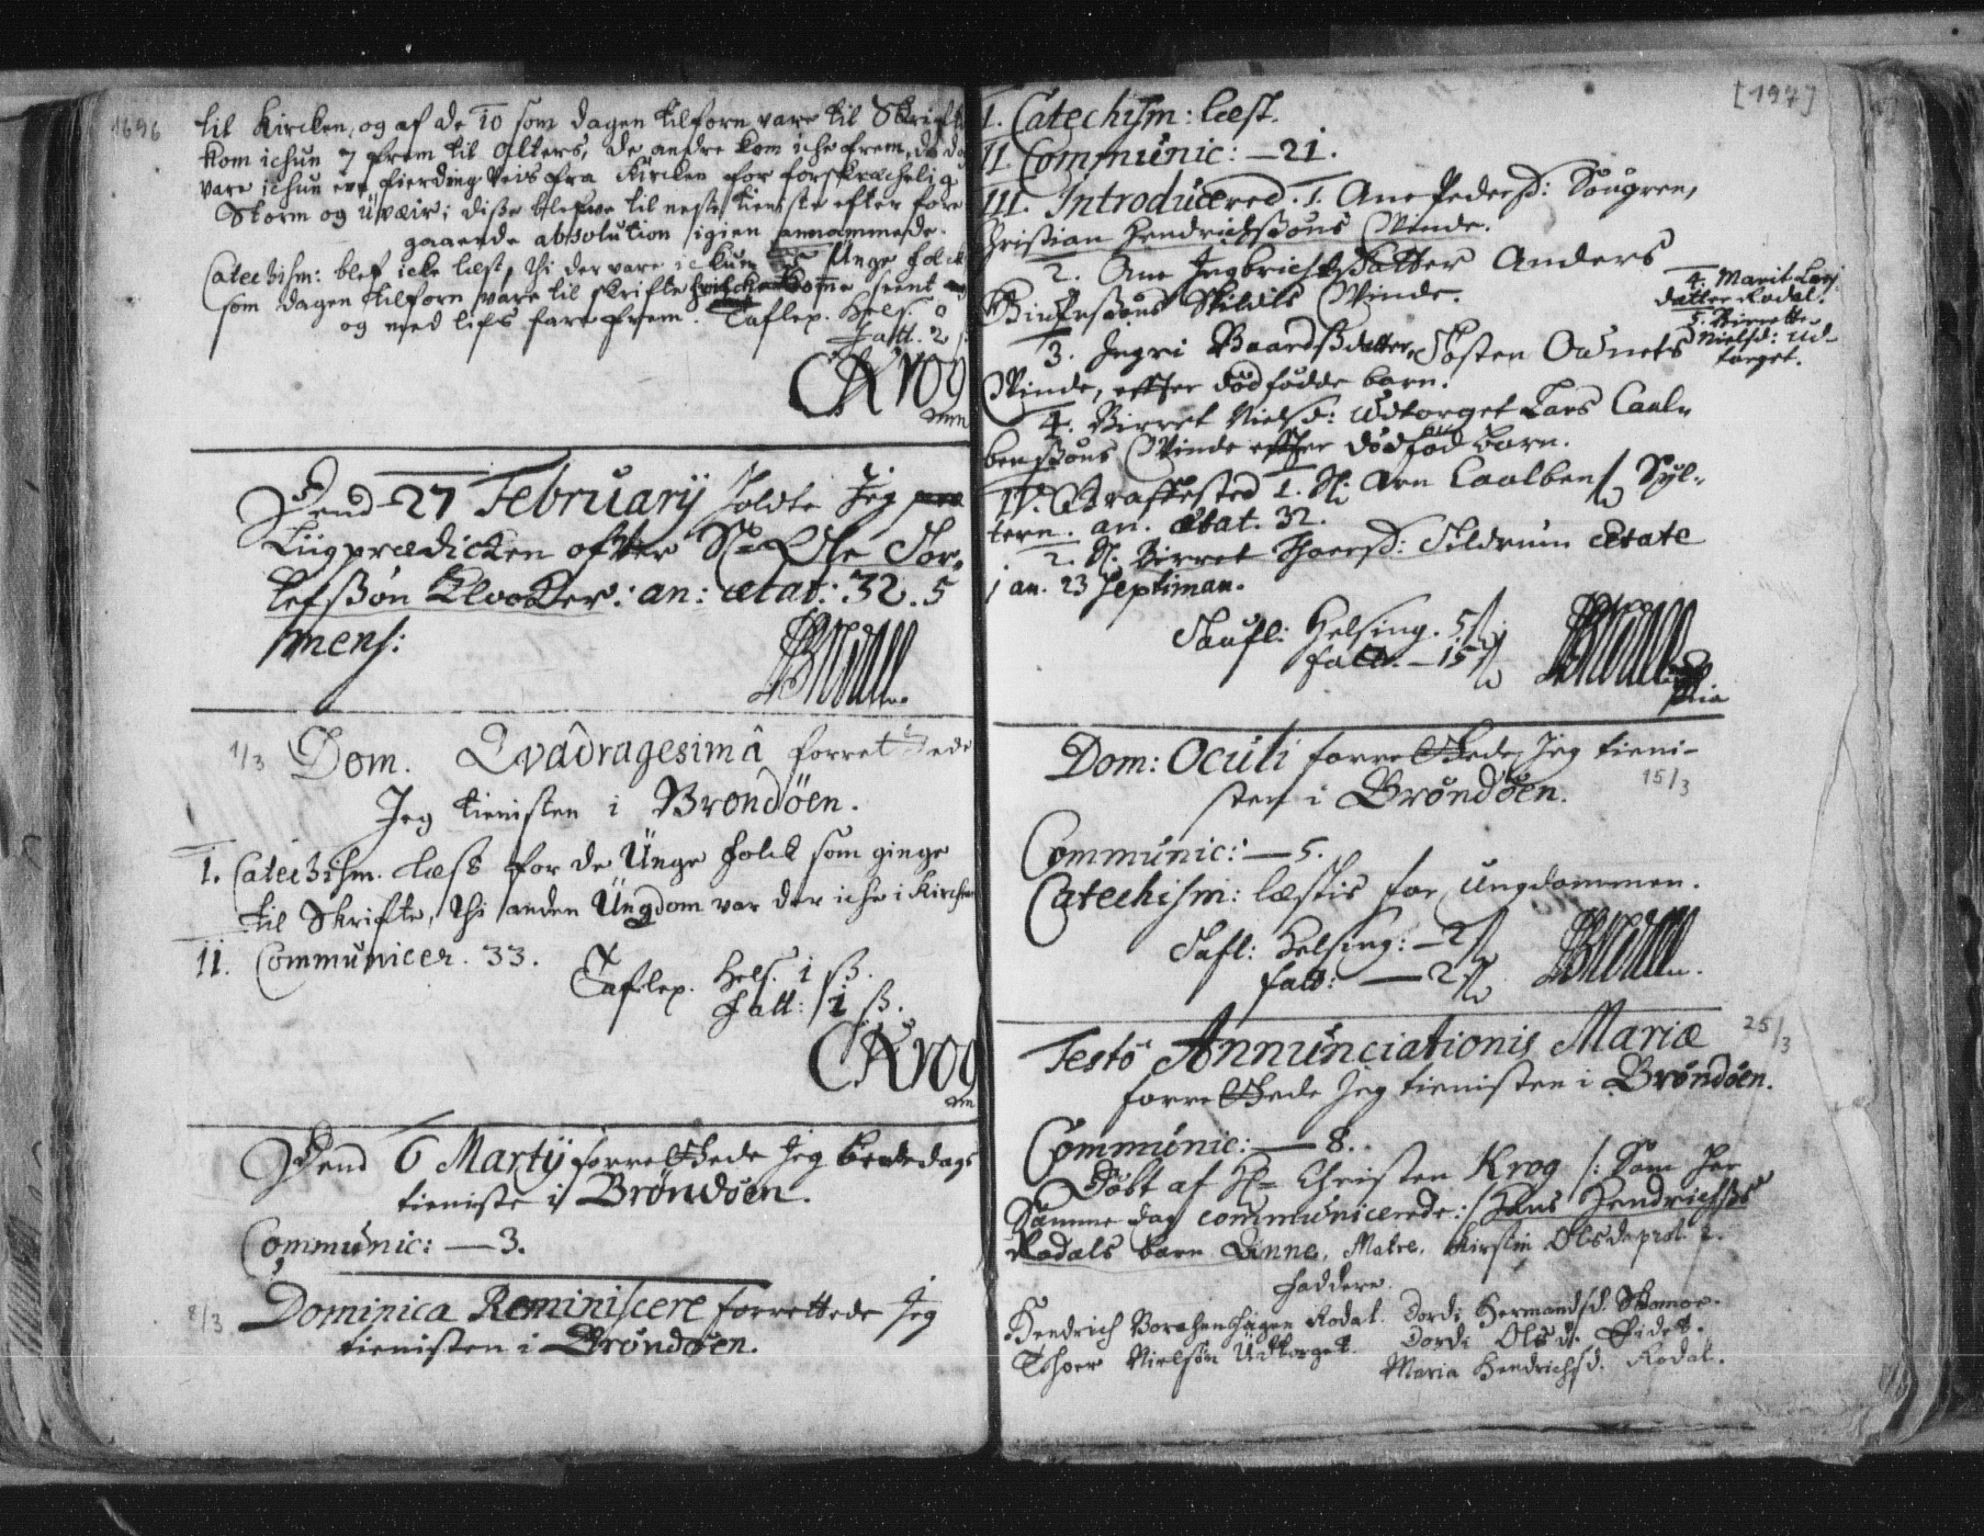 1696
til Kircken, og af de 10 som dagen tilforn vare til Skrifte
kom ichun 7 frem til Alters, de andre kom iche frem, da de
vare ichun een fierding Veis fra Kircken for forskræchelig
Storm og Uveir; disse blefve til neste tieniste efter fore
gaaende absolution igien annammede.
Catechism: blef icke læst, thi der vare ickun de Unge folck
som dagen tilforn vare til skrifte komme seent
og med lifs fare frem. Taflep. Hels. 0
Fatt. 2 s
CKrog
mm
Dend 27 February holdte Jeg
Liigprædicken ofver Sl Ole Tor-
lefssøn Klocker: an: ætat: 32. 5
mens:
1/3 Dom. Qvadragesimâ forrettede
Jeg tienisten i Brøndöen.
I. Catechism. læst for de Unge folck som ginge
til Skrifte, thi anden Ungdom var der iche i Kircken
II. Communicer. 33.
Taflep. Hels. 1 ß.
Fatt: 1 ß.
CKrog
mm
Dend 6 Martij forrettede Jeg bededags
tieniste i Brøndöen.
Communic: — 3.
8/3 Dominica Reminiscere forrettede Jeg
tienisten i Brøndöen.
[197]
I. Catechism: læst.
II. Communic: — 21.
III. Introducered. 1. Ane Pedersd: Sougren,
Christian Hendrichssøns Qvinde.
2. Ane Ingbrichtsdatter Anders
Qvinde.
3. Ingri Baardsdatter, Tosten
Qvinde, efter dödfødde barn.
4. Birret Nielsd: Udtorget Lars
Qvinde efter dödfød barn.
4. Marit Lars
datter Rodal.
5. Birrette
Nielsd: Ud-
torget.
IV. Graffested 1. Sl. Arn
tern. an. ætat. 32.
2. Sl. Birret Thoersd: Tildrum ætate
1 an. 23 septiman.
Taufl: Helsing. 5
fatt. — 15
Dom: Oculi forrettede Jeg tieni-
sten i Brøndöen.
15/3
Communic: — 5.
Catechism: læstis for Ungdommen.
Tafl: Helsing: — 2
fatt: — 2
Festô Annunciationis Mariæ
25/3
forrettede Jeg tienisten i Brøndöen.
Communic: — 8.
Döbt af Hr Christen Krog /: Som her
Samme dag communicerede :/ Hans Hendrichss
Rodals barn Anne, Matre, Kirstin Olsda
Faddere.
Hendrich Rodal. Dordi Hermandsd.
Thoer Nielsøn Udtorget. Dordi Olsd.
Maria Hendrichsd. Rodal.